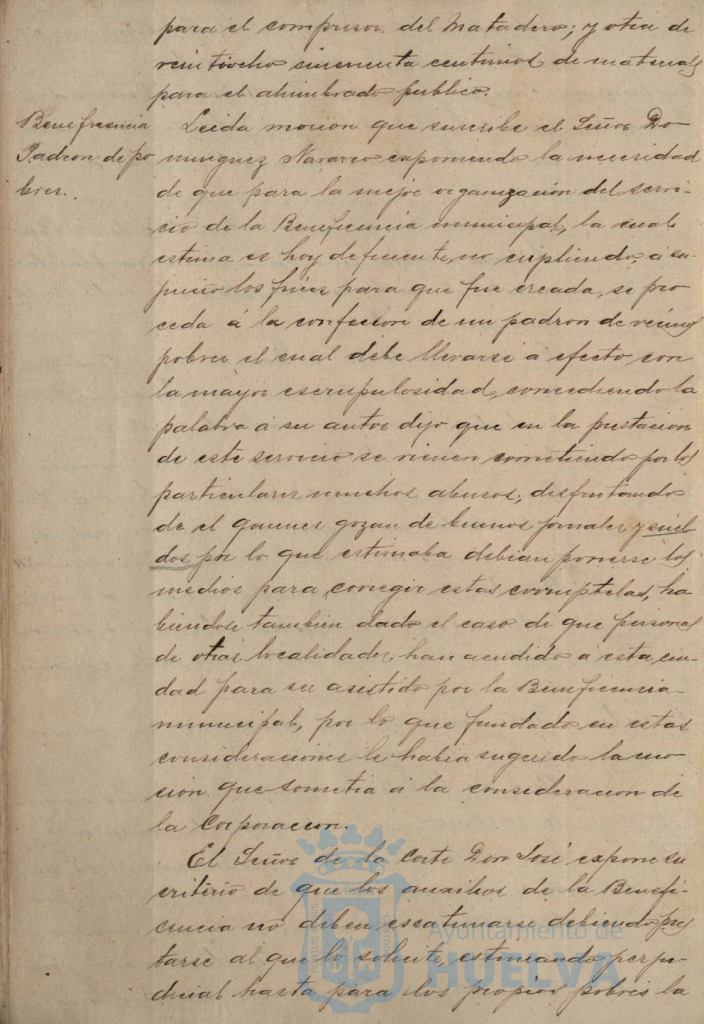 para el compresor del Matadero; y otra de
veintiocho cincuenta centimos de material
para el alumbrado publico.
Beneficencia
Padron de po
bres.
Leida mocion que suscribe el Señor Do
minguez Navarro exponiendo la necesidad
de que para la mejor organización del servi-
cio de la Beneficencia municipal, la cual
estima es hoy deficiente, no cupliendo, á su
juicio los fines para que fue creada, se pro
ceda á la confeccion de un padron de vecinos
pobres el cual debe llevarse a efecto con
la mayor escrupulosidad, concediendo la
palabra á su autor dijo que en la prestacion
de este servicio se vienen cometiendo por los
particulares muchos abusos, disfrutando
de el quienes gozan de buenos jornales y suel
dos por lo que estimaba debian ponerse los
medios para corregir estas corruptelas, ha
biendose tambien dado el caso de que personal
de otras localidades, han acudido a esta ciu
dad para ser asistido por la Beneficencia
municipal, por lo que fundado en estas
consideraciones le habia sugerido la mo
cion que sometia á la consideracion de
la Corporacion.
El Señor de la Corte Don José expone su
criterio de que los auxilios de la Benefi
cencia no deben escatimarse debiendo pres
tarse al que lo solicite, estimando perju
dicial hasta para los propios pobres la
Ayuntamiento de
HUELVA